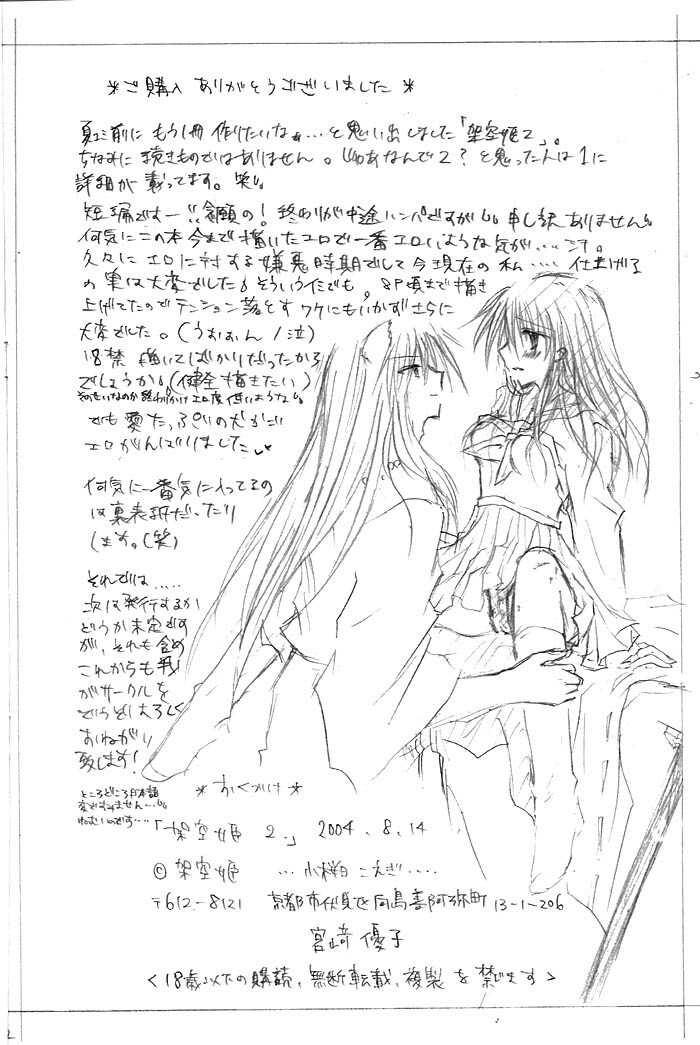 *ご購入 ありがとうございました*
夏コミ前に もう1冊 作りたいなぁ…と思い出しました「架空姫2」。
ちなみに 続きものではありません。じゃあなんで2?と思った人は1に
詳細が 載ってます。笑
短編ですー!!念願の!終わりが中途ハンパですが 申し訳ありません
何気にこの本今まで描いたエロで一番エロいような気が…
久々に エロに対する嫌悪時期でして今現在の私…. 仕上げる
の 実は大変でした そういうイミでも。8P頃まで描き
上げてたのでテンション落とすワケにもいかずさらに
大変でした。(うおぉん/泣)
18禁 描いてばかりだったから
でしょうか。(健全描きたい)
でも愛たっぷりの
エロがんばりました
何気に一番気に入ってるの
は裏表紙だったり
します。(笑)
それでは.....
次は発行するか
どうか未定です
が、それも含め
これからも我
がサークルを
どうぞよろしく
おねがい
致します!
ところどころ日本語
変ですみません…
ねむいのです…
*おくがき*
「架空姫 2.」 2004.8.14
©架空姫 …小桜 こえぎ....
〒612-8121 京都市伏見区向島善阿弥町13-1-206
宮崎 優子
<18歳以下の購読、無断転載、複製を禁じます>